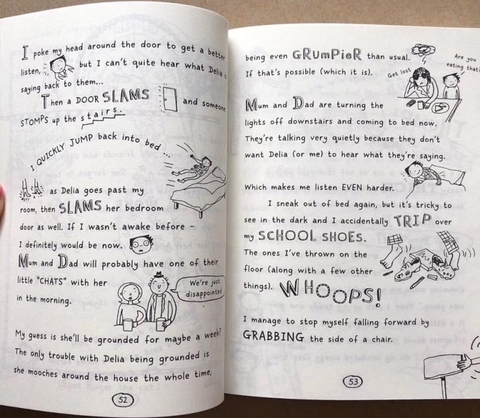 I poke my head around the door to get a better
listen, but I can't quite hear what Delia is
saying back to them...
Then a DOOR SLAMS and someone
STOMPS up the stairs.
I QUICKLY JUMP back into bed
as Delia goes past my
room, then SLAMS her bedroom
door as well. If I wasn't awake before -
I definitely would be now.
Mum and Dad will probably have one of their
little "CHATS" with her
in the morning.
We're just
disappointed
My guess is she'll be grounded for maybe a week?
The only trouble with Delia being grounded is
she mooches around the house the whole time,
52
being even GRumPieR than usual.
If that's possible (which it is).
Get lost
Are you
eating that?
Mum and Dad are turning the
lights off downstairs and coming to bed now.
They're talking very quietly because they don't
want Delia (or me) to hear what they're saying.
Which makes me listen EVEN harder.
I sneak out of bed again, but it's tricky to
see in the dark and I accidentally TRIP over
my SCHOOL SHOES.
The ones I've thrown on the
floor (along with a few other
things). WHOOPS!
I manage to stop myself falling forward by
GRABBING the side of a chair.
53